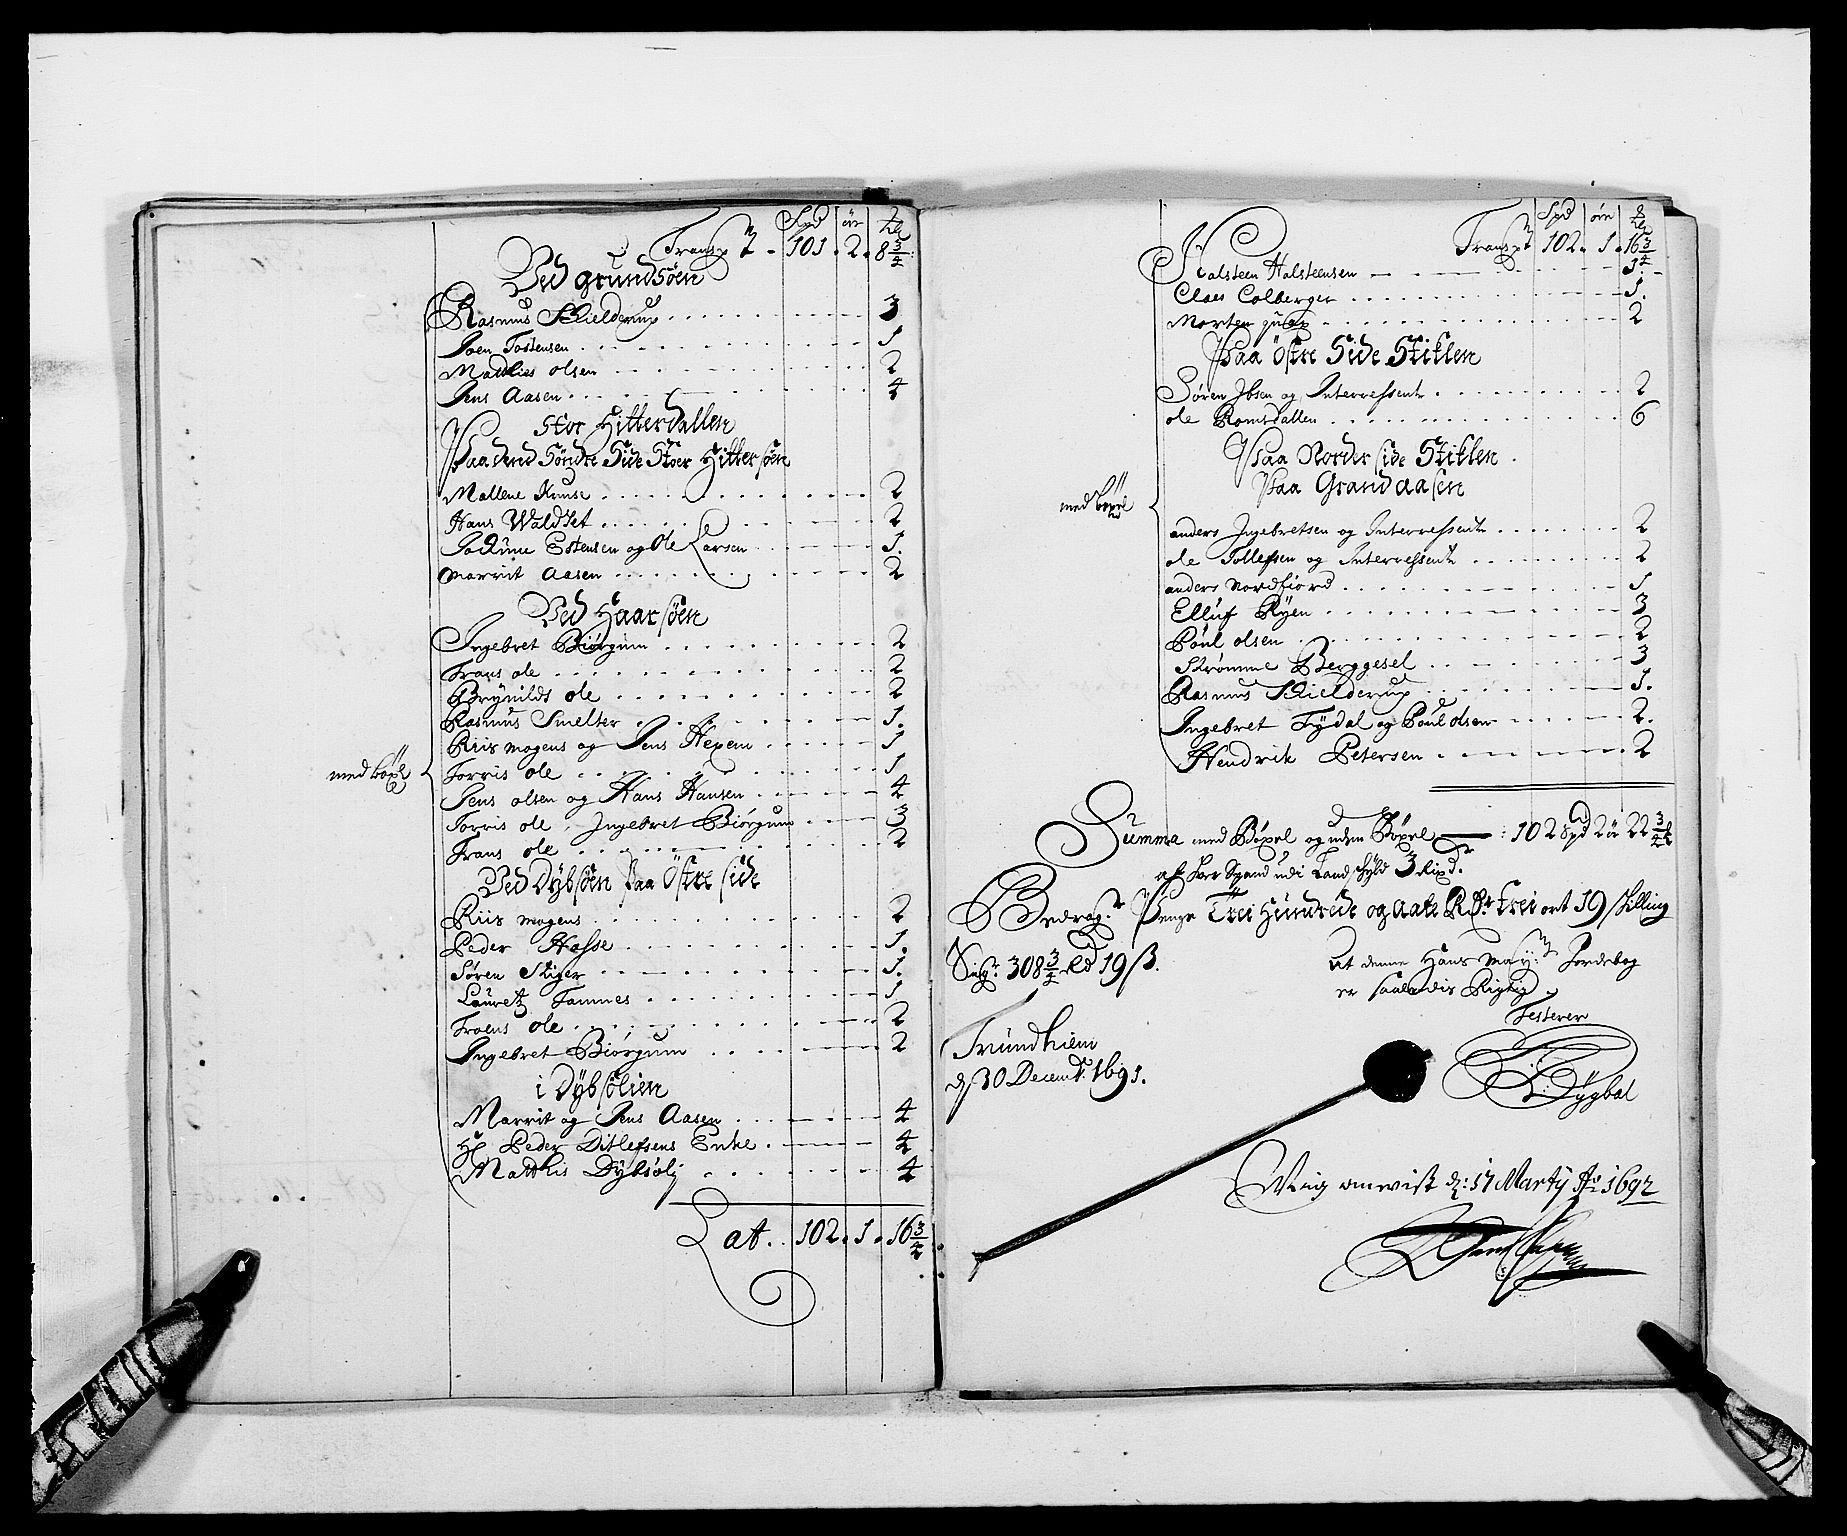 Spd öre
Transpt 101. 2. 8 3/4
Ved grundsöen
Rasmus Skielderup 3
Joen Tostensen 1
Matthias olsen 2
Jens Aasen 4
Stor Hitterdallen
Paa dend Söndre Side Stoer Hittersöen
Mallene Kruse 2
Hans Waldset 2
Jochum Estensen og Ole Larsen 1.
Marrit Aasen 2
Ved Haarsöen
Ingebret Biörgum 2
Frans ole 2
Brynilds ole 2
Rasmus Smelter 1.
Riis mogens og Jens Hexem 1
med böxl
Torris ole 1
Jens olsen og Hans Hansen 4
Torris ole, Ingebret Biörgum 3
Frans ole 2
Ved Dybsöen paa Östre side
Riis mogens 2
Peder Hasse 1.
Sören Stiger 1.
Lauretz Tammes 1
Troens ole 2
Ingebret Biörgum 2
i Dybsölien
Marrit og Jens Aasen 4
Hl Peder Ditlefsens Enke 4
Matthis Dybsöli 4
Lat. 102. 1. 16 3/4
Spd öre
Transpt 102. 1. 16 3/4
Halsteen Halsteensen 1.
Claes Colberger 1.
Morten 2
Paa Östre Side Stiklen
Sören Ibsen og Interressentr 2
ole Romsdallen 6
Paa Norder side Stiklen.
Paa Grandaasen
med böxel
anders Ingebretsen og Interressentr 2
ole Tollefsen og Interressentr 2
anders Nordfiord 1
Elluf Ryen 3
Poul olsen 2
Strömme Berggesel 3
Rasmus Skielderup 1.
Ingebret Tydal og Poul olsen 2.
Hendrik Petersen 2
Summa med Böxel og uden Böxel : 102 Spd 2 ör 22 3/4
aff huer Spand udi Landskyld 3 Rixd.
Bedrager Penge Trei Hundrede og aate Rdr trei ort 19 skilling
Siger 308 3/4 Rd 19 ß.
At denne Hans Mayts Jordebog
er saaledis Rigtig
Testerer
Trundhiem
d 30 Decembr 1691.
Dygbal
Wiig anwist d: 17 Martij Ao 1692